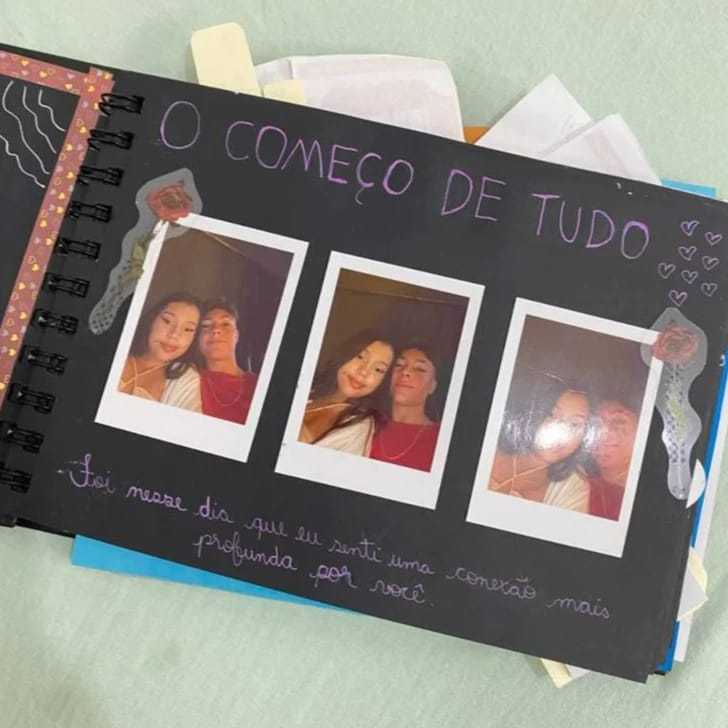 O COMEÇO DE TUDO
Foi nesse dia que eu senti uma conexão mais
profunda por você.